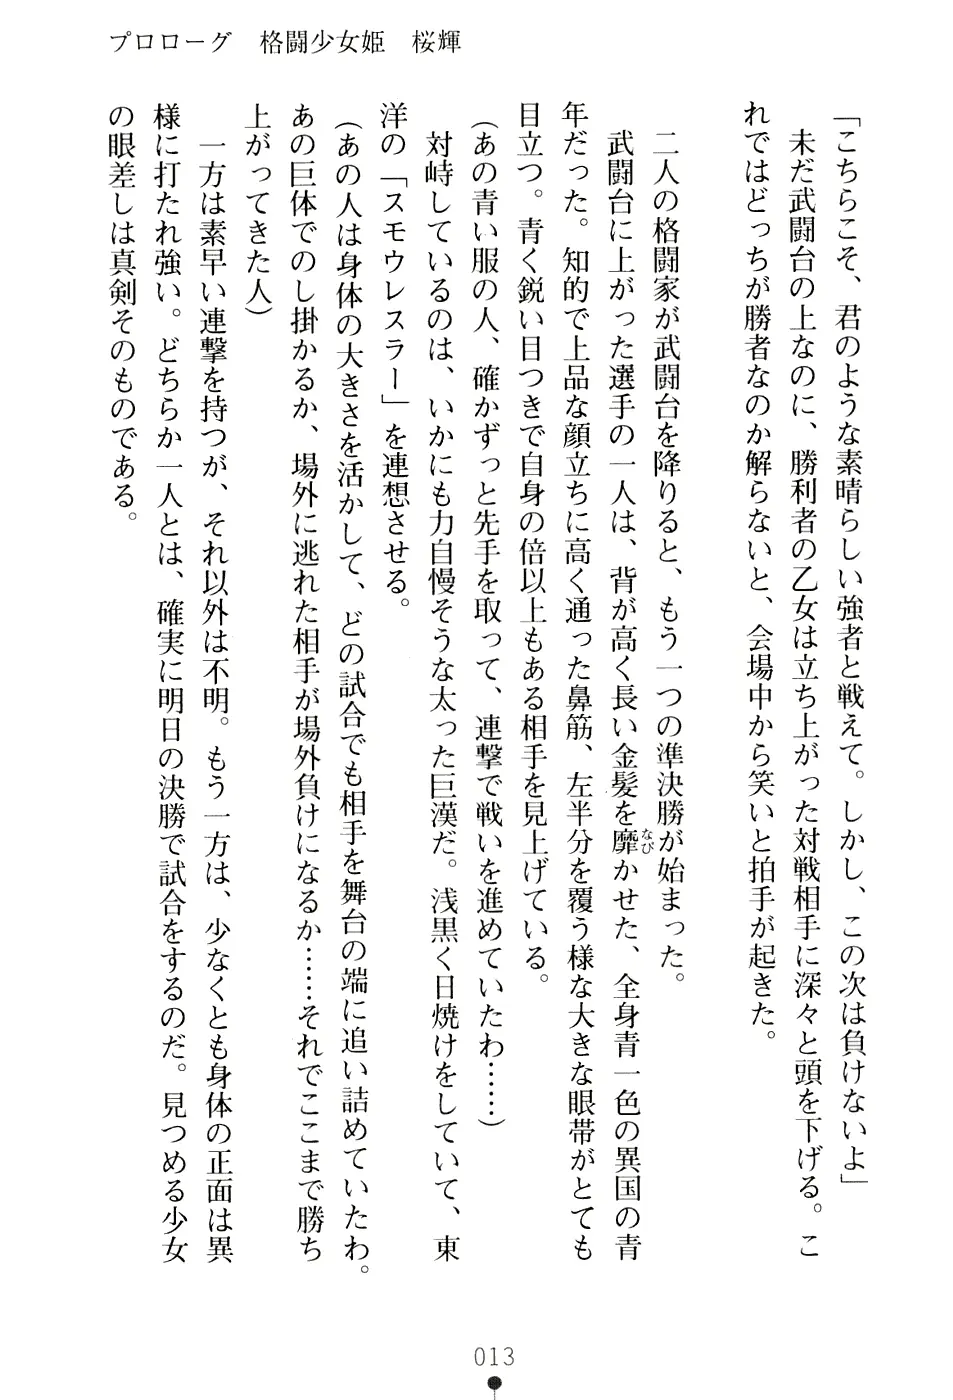 プロローグ　格闘少女姫　桜輝
「こちらこそ、君のような素晴らしい強者と戦えて。しかし、この次は負けないよ」
　未だ武闘台の上なのに、勝利者の乙女は立ち上がった対戦相手に深々と頭を下げる。こ
れではどっちが勝者なのか解らないと、会場中から笑いと拍手が起きた。
　二人の格闘家が武闘台を降りると、もう一つの準決勝が始まった。
　武闘台に上がった選手の一人は、背が高く長い金髪を靡かせた、全身青一色の異国の青
なび
年だった。知的で上品な顔立ちに高く通った鼻筋、左半分を覆う様な大きな眼帯がとても
目立つ。青く鋭い目つきで自身の倍以上もある相手を見上げている。
（あの青い服の人、確かずっと先手を取って、連撃で戦いを進めていたわ……）
　対峙しているのは、いかにも力自慢そうな太った巨漢だ。浅黒く日焼けをしていて、東
洋の「スモウレスラー」を連想させる。
（あの人は身体の大きさを活かして、どの試合でも相手を舞台の端に追い詰めていたわ。
あの巨体でのし掛かるか、場外に逃れた相手が場外負けになるか……それでここまで勝ち
上がってきた人）
　一方は素早い連撃を持つが、それ以外は不明。もう一方は、少なくとも身体の正面は異
様に打たれ強い。どちらか一人とは、確実に明日の決勝で試合をするのだ。見つめる少女
の眼差しは真剣そのものである。
013